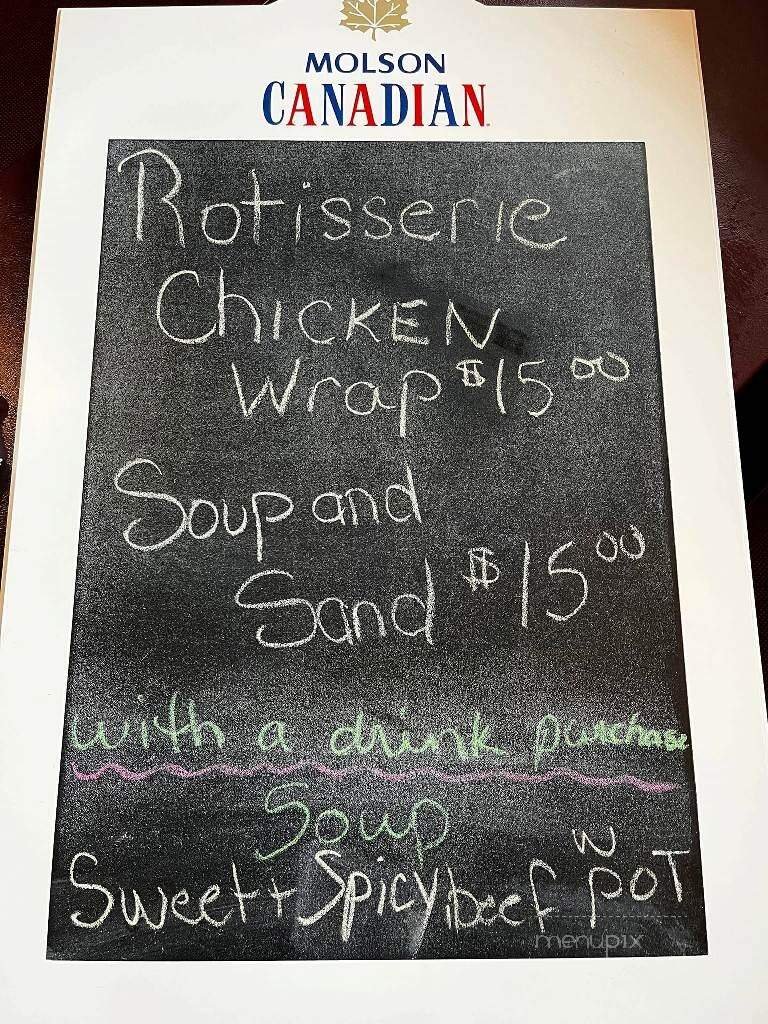 MOLSON
CANADIAN
Rotisserie
CHICKEN
Wrap $15 00
Soup and
Sand $15 00
with a drink purchase
Soup
Sweet + Spicy beef w POT
menupix